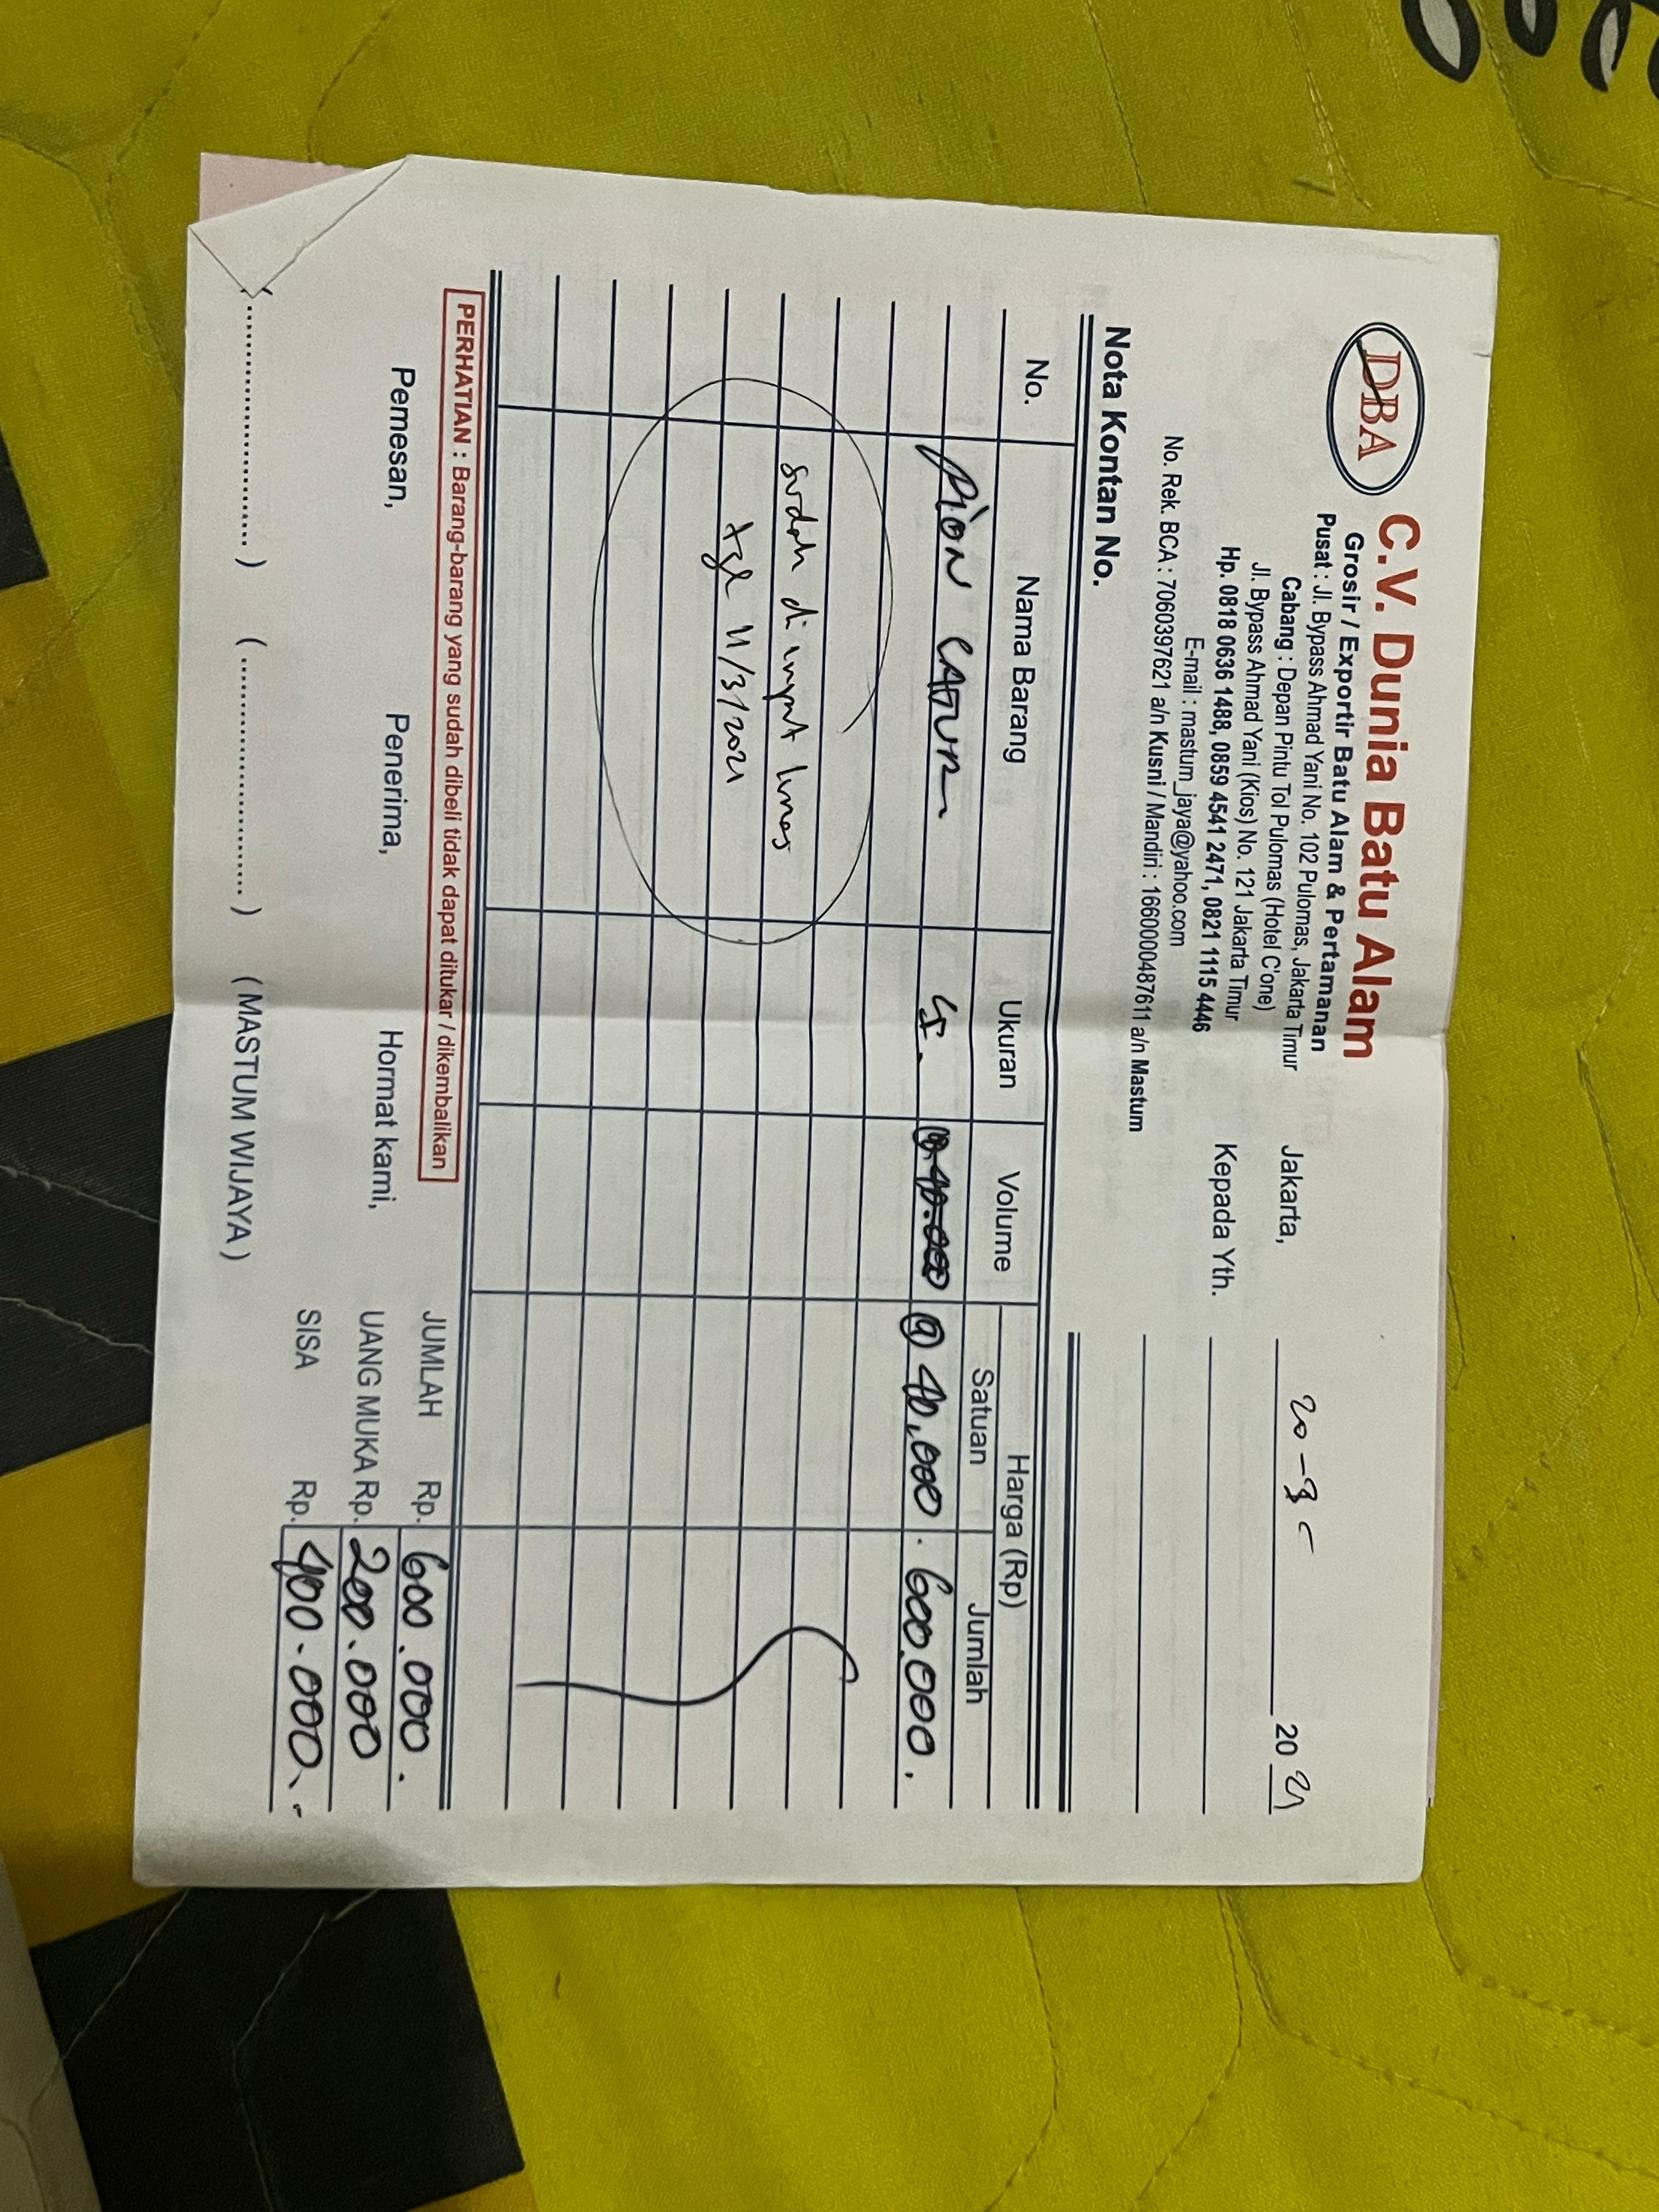 DBA
C.V. Dunia Batu Alam
Grosir / Exportir Batu Alam & Pertamanan
Pusat : Jl. Bypass Ahmad Yani No. 102 Pulomas, Jakarta Timur
Cabang : Depan Pintu Tol Pulomas (Hotel C'one)
Jl. Bypass Ahmad Yani (Kios) No. 121 Jakarta Timur
Hp. 0818 0636 1488, 0859 4541 2471, 0821 1115 4446
E-mail : mastum_jaya@yahoo.com
No. Rek. BCA : 7060397621 a/n Kusni / Mandiri : 1660000487611 a/n Mastum
Jakarta, 20 - 3 - 20 21
Kepada Yth.
Nota Kontan No.
No. Nama Barang Ukuran Volume Harga (Rp)
Satuan Jumlah
Pion CATUR @ 40,000 . 600.000 .
sudah di input lunas
tgl 11/3/2021
PERHATIAN : Barang-barang yang sudah dibeli tidak dapat ditukar / dikembalikan
JUMLAH Rp. 600.000 .
UANG MUKA Rp. 200.000
SISA Rp. 400.000.-
Pemesan, Penerima, Hormat kami,
(..............................) (..............................) ( MASTUM WIJAYA )